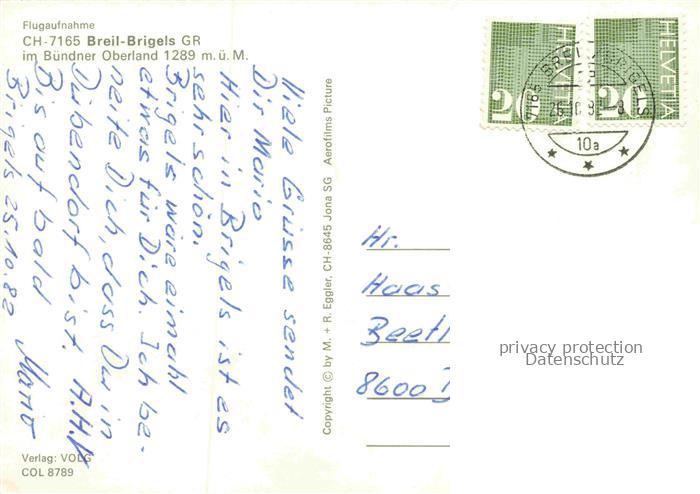 Flugaufnahme
CH-7165 Breil-Brigels GR
im Bündner Oberland 1289 m.ü.M.
Viele Grüsse sendet
Dir Mario
Hier in Brigels ist es
sehr schön.
Brigels wäre eimahl
etwas für Dich. Ich be-
neite Dich, dass Du in
Dübendorf bist. A.H.V
Bis auf bald
Brigels 25.10.82 Mario
Verlag: VOLG
COL 8789
Copyright © by M. + R. Eggler, CH-8645 Jona SG Aerofilms Picture
HELVETIA
20
HELVETIA
20
7165 BREIL/BRIGELS
10a
Hr.
Haas
Beetl
8600 D
privacy protection
Datenschutz